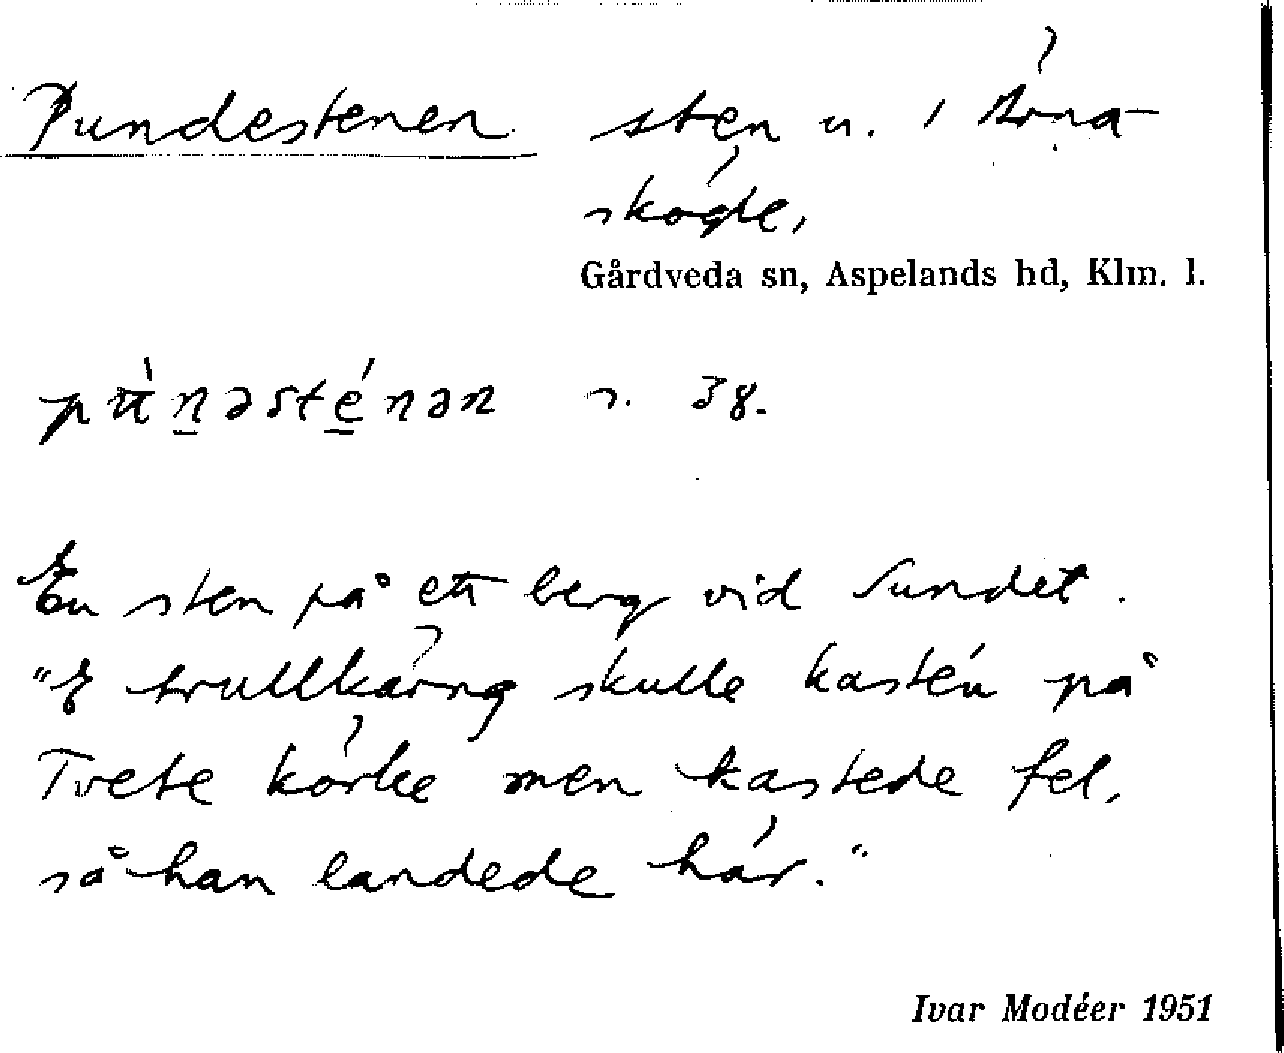 Pundestenen sten u. Törna-
skógle,
Gårdveda sn, Aspelands hd, Klm. l.
s. 38.
En sten på ett berg vid Sundet.
"E trullkäring skulle kastén på
Tvete körke men kastede fel,
så han landede här."
Ivar Modéer 1951